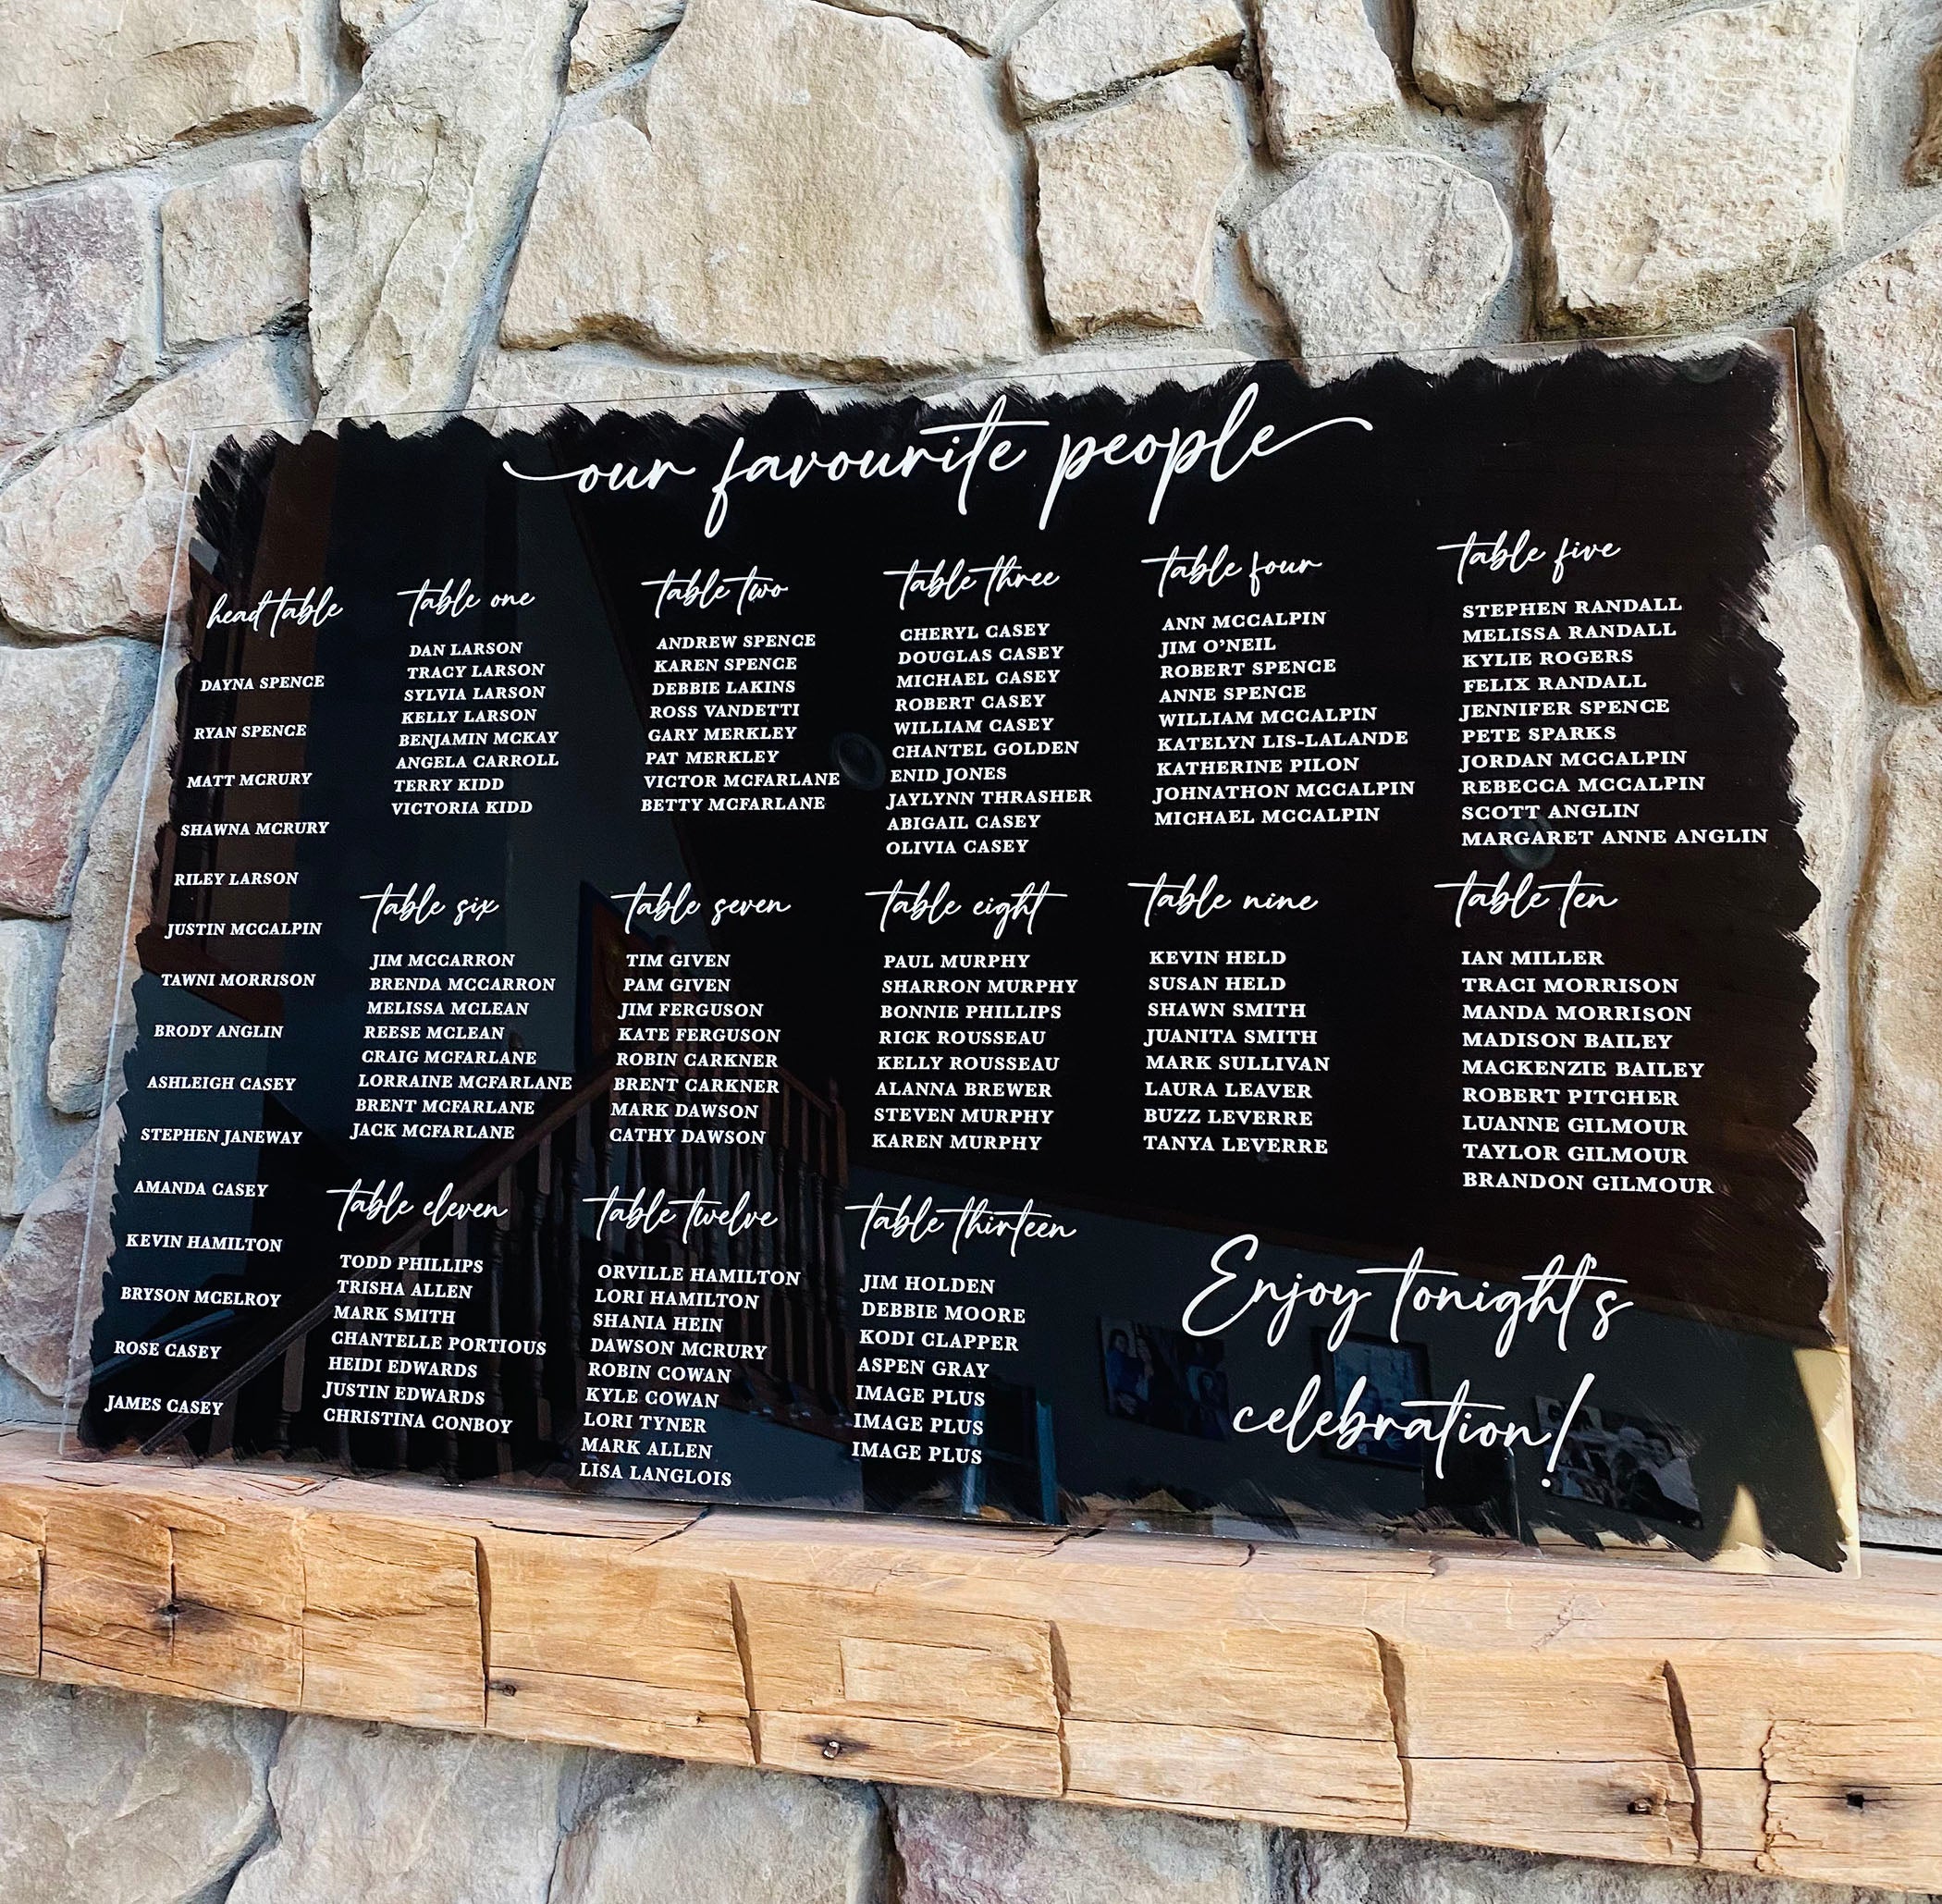 our favourite people
head table
DAYNA SPENCE
RYAN SPENCE
MATT MCRURY
SHAWNA MCRURY
RILEY LARSON
JUSTIN MCCALPIN
TAWNI MORRISON
BRODY ANGLIN
ASHLEIGH CASEY
STEPHEN JANEWAY
AMANDA CASEY
KEVIN HAMILTON
BRYSON MCELROY
ROSE CASEY
JAMES CASEY
table one
DAN LARSON
TRACY LARSON
SYLVIA LARSON
KELLY LARSON
BENJAMIN MCKAY
ANGELA CARROLL
TERRY KIDD
VICTORIA KIDD
table two
ANDREW SPENCE
KAREN SPENCE
DEBBIE LAKINS
ROSS VANDETTI
GARY MERKLEY
PAT MERKLEY
VICTOR MCFARLANE
BETTY MCFARLANE
table three
CHERYL CASEY
DOUGLAS CASEY
MICHAEL CASEY
ROBERT CASEY
WILLIAM CASEY
CHANTEL GOLDEN
ENID JONES
JAYLYNN THRASHER
ABIGAIL CASEY
OLIVIA CASEY
table four
ANN MCCALPIN
JIM O'NEIL
ROBERT SPENCE
ANNE SPENCE
WILLIAM MCCALPIN
KATELYN LIS-LALANDE
KATHERINE PILON
JOHNATHON MCCALPIN
MICHAEL MCCALPIN
table five
STEPHEN RANDALL
MELISSA RANDALL
KYLIE ROGERS
FELIX RANDALL
JENNIFER SPENCE
PETE SPARKS
JORDAN MCCALPIN
REBECCA MCCALPIN
SCOTT ANGLIN
MARGARET ANNE ANGLIN
table six
JIM MCCARRON
BRENDA MCCARRON
MELISSA MCLEAN
REESE MCLEAN
CRAIG MCFARLANE
LORRAINE MCFARLANE
BRENT MCFARLANE
JACK MCFARLANE
table seven
TIM GIVEN
PAM GIVEN
JIM FERGUSON
KATE FERGUSON
ROBIN CARKNER
BRENT CARKNER
MARK DAWSON
CATHY DAWSON
table eight
PAUL MURPHY
SHARRON MURPHY
BONNIE PHILLIPS
RICK ROUSSEAU
KELLY ROUSSEAU
ALANNA BREWER
STEVEN MURPHY
KAREN MURPHY
table nine
KEVIN HELD
SUSAN HELD
SHAWN SMITH
JUANITA SMITH
MARK SULLIVAN
LAURA LEAVER
BUZZ LEVERRE
TANYA LEVERRE
table ten
IAN MILLER
TRACI MORRISON
MANDA MORRISON
MADISON BAILEY
MACKENZIE BAILEY
ROBERT PITCHER
LUANNE GILMOUR
TAYLOR GILMOUR
BRANDON GILMOUR
table eleven
TODD PHILLIPS
TRISHA ALLEN
MARK SMITH
CHANTELLE PORTIOUS
HEIDI EDWARDS
JUSTIN EDWARDS
CHRISTINA CONBOY
table twelve
ORVILLE HAMILTON
LORI HAMILTON
SHANIA HEIN
DAWSON MCRURY
ROBIN COWAN
KYLE COWAN
LORI TYNER
MARK ALLEN
LISA LANGLOIS
table thirteen
JIM HOLDEN
DEBBIE MOORE
KODI CLAPPER
ASPEN GRAY
IMAGE PLUS
IMAGE PLUS
IMAGE PLUS
Enjoy tonight's
celebration!